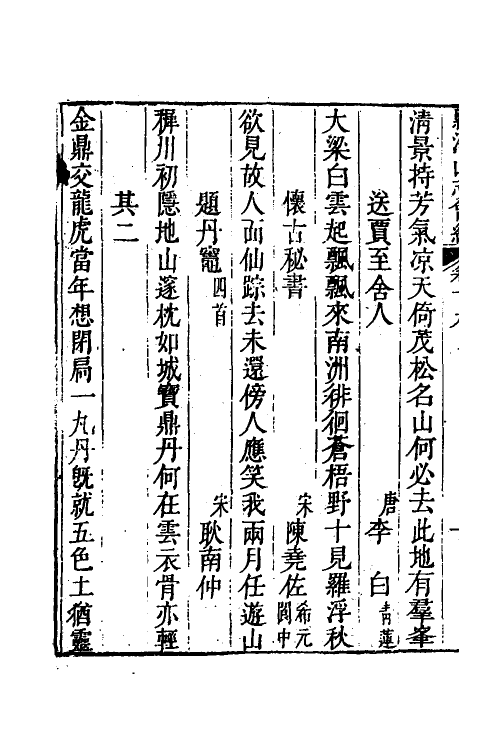 清景持芳氣凉天倚茂松名山何必去此地有羣峯
送賈至舍人　唐李白青蓮
大梁白雲起飄飄來南洲徘徊蒼梧野十見羅浮秋
懷古秘書　宋陳堯佐希元閬中
欲見故人面仙踪去未還傍人應笑我兩月任遊山
題丹竈四首　宋耿南仲
穉川初隱地山邃枕如城寶鼎丹何在雲衣骨亦輕
其二
金鼎交龍虎當年想閉扃一丸丹旣就五色土猶靈